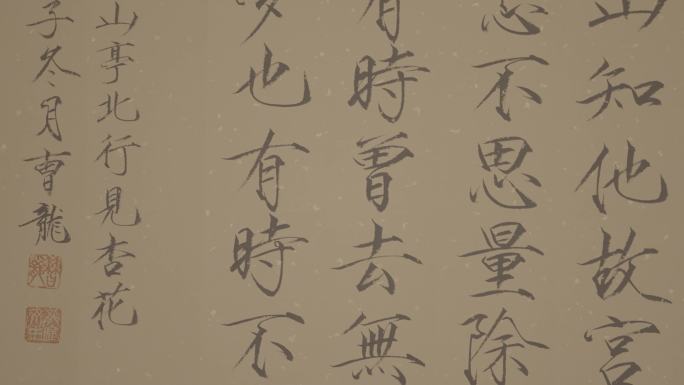 山知他故宮
怎不思量除
有時曾去無
夢也有時不
山亭北行見杏花
子冬月曹龍